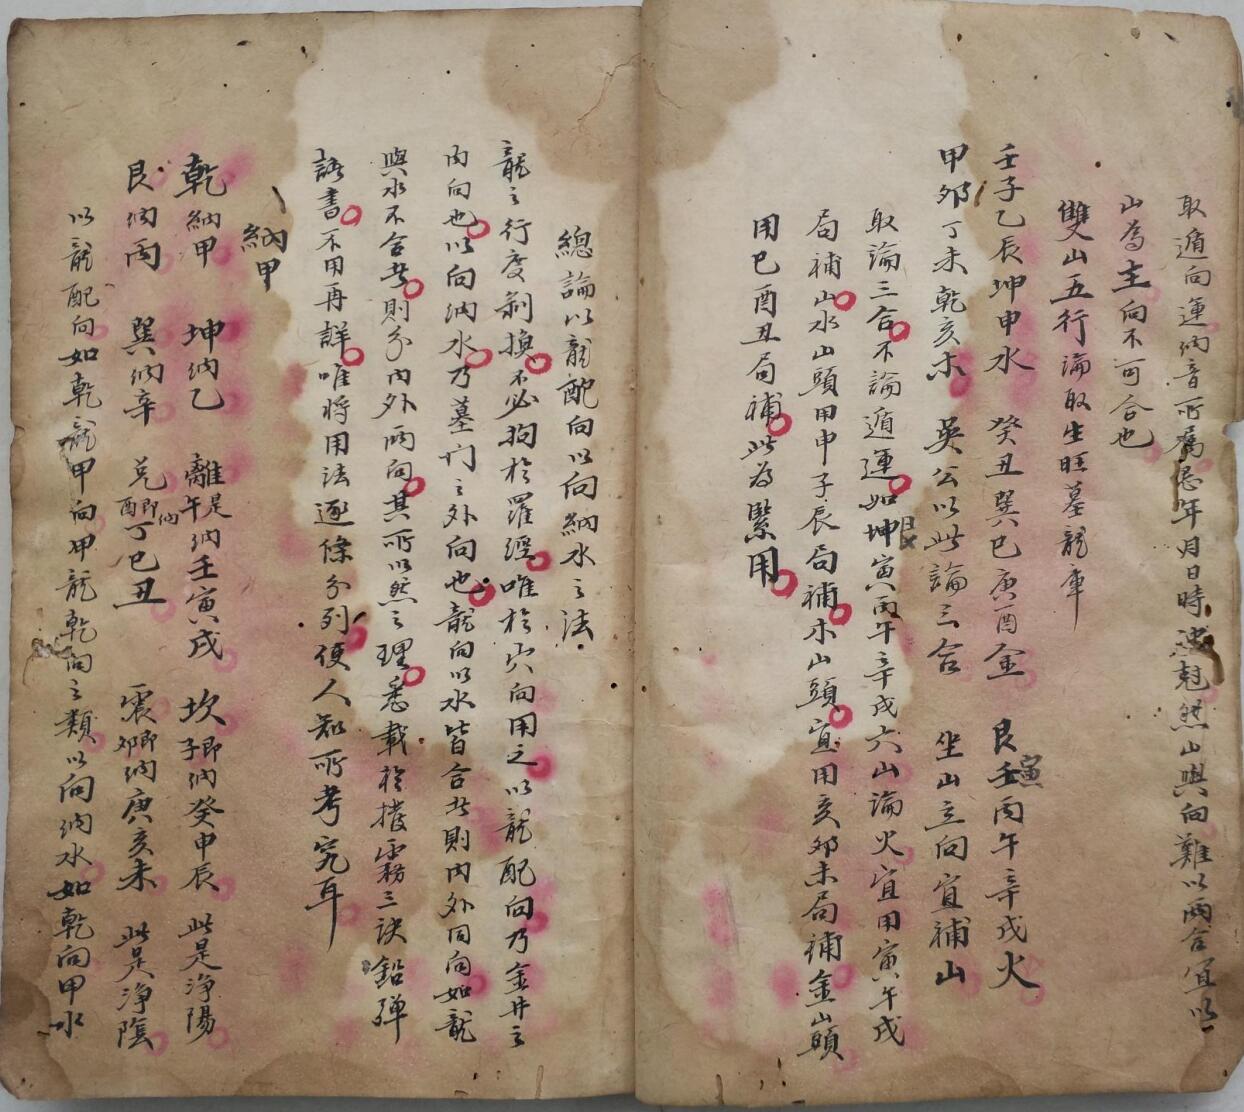 取遁向運納音所屬忌年月日時尅然山與向難以兩合宜以
山為主向不可合也
雙山五行論取生旺墓龍庫
壬子乙辰坤申水　癸丑巽巳庚酉金　艮寅丙午辛戌火
甲卯丁未乾亥木　吳公以此論三合　坐山立向宜補山
取論三合不論遁運如艮寅丙午辛戌六山論火宜用寅午戌
局補山水山頭用申子辰局補木山頭宜用亥卯未局補金山頭
用巳酉丑局補此為緊用
總論以龍配向以向納水之法
龍之行度剝換不必拘於羅經唯於穴向用之以龍配向乃金井之
內向也以向納水乃墓門之外向也龍向以水皆合者則內外同向如龍
與水不合者則分內外兩向其所以然之理悉載於撥霧三訣鉛彈
諸書不用再詳唯將用法逐條分列便人知所考究耳
納甲
乾納甲　坤納乙　離是午納壬寅戌　坎即子納癸申辰　此是淨陽
艮納丙　巽納辛　兌即酉納丁巳丑　震即卯納庚亥未　此是淨陰
以龍配向如乾龍甲向甲龍乾向之類以向納水如乾向甲水